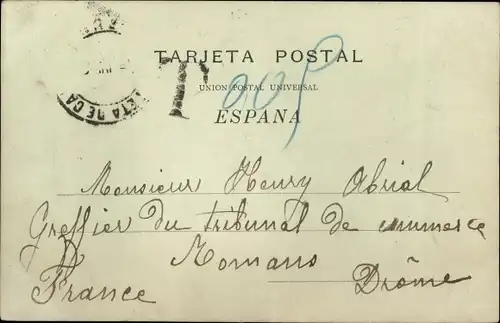 TARJETA POSTAL
UNION POSTAL UNIVERSAL
ESPAÑA
T
Monsieur Henry Abrial
Greffier du tribunal de commerce
Romans
France Drôme